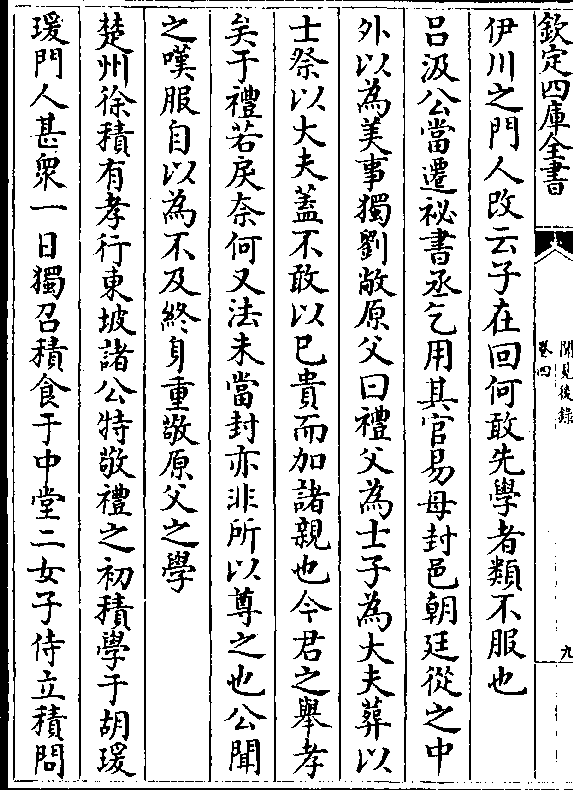 欽定四庫全書
聞見後錄
卷四
九
伊川之門人改云子在回何敢先學者類不服也
吕汲公當遷祕書丞乞用其官易母封邑朝廷從之中
外以為美事獨劉敞原父曰禮父為士子為大夫葬以
士祭以大夫蓋不敢以已貴而加諸親也今君之舉孝
矣于禮若戾奈何又法未當封亦非所以尊之也公聞
之嘆服自以為不及終身重敬原父之學
楚州徐積有孝行東坡諸公特敬禮之初積學于胡瑗
瑗門人甚衆一日獨召積食于中堂二女子侍立積問